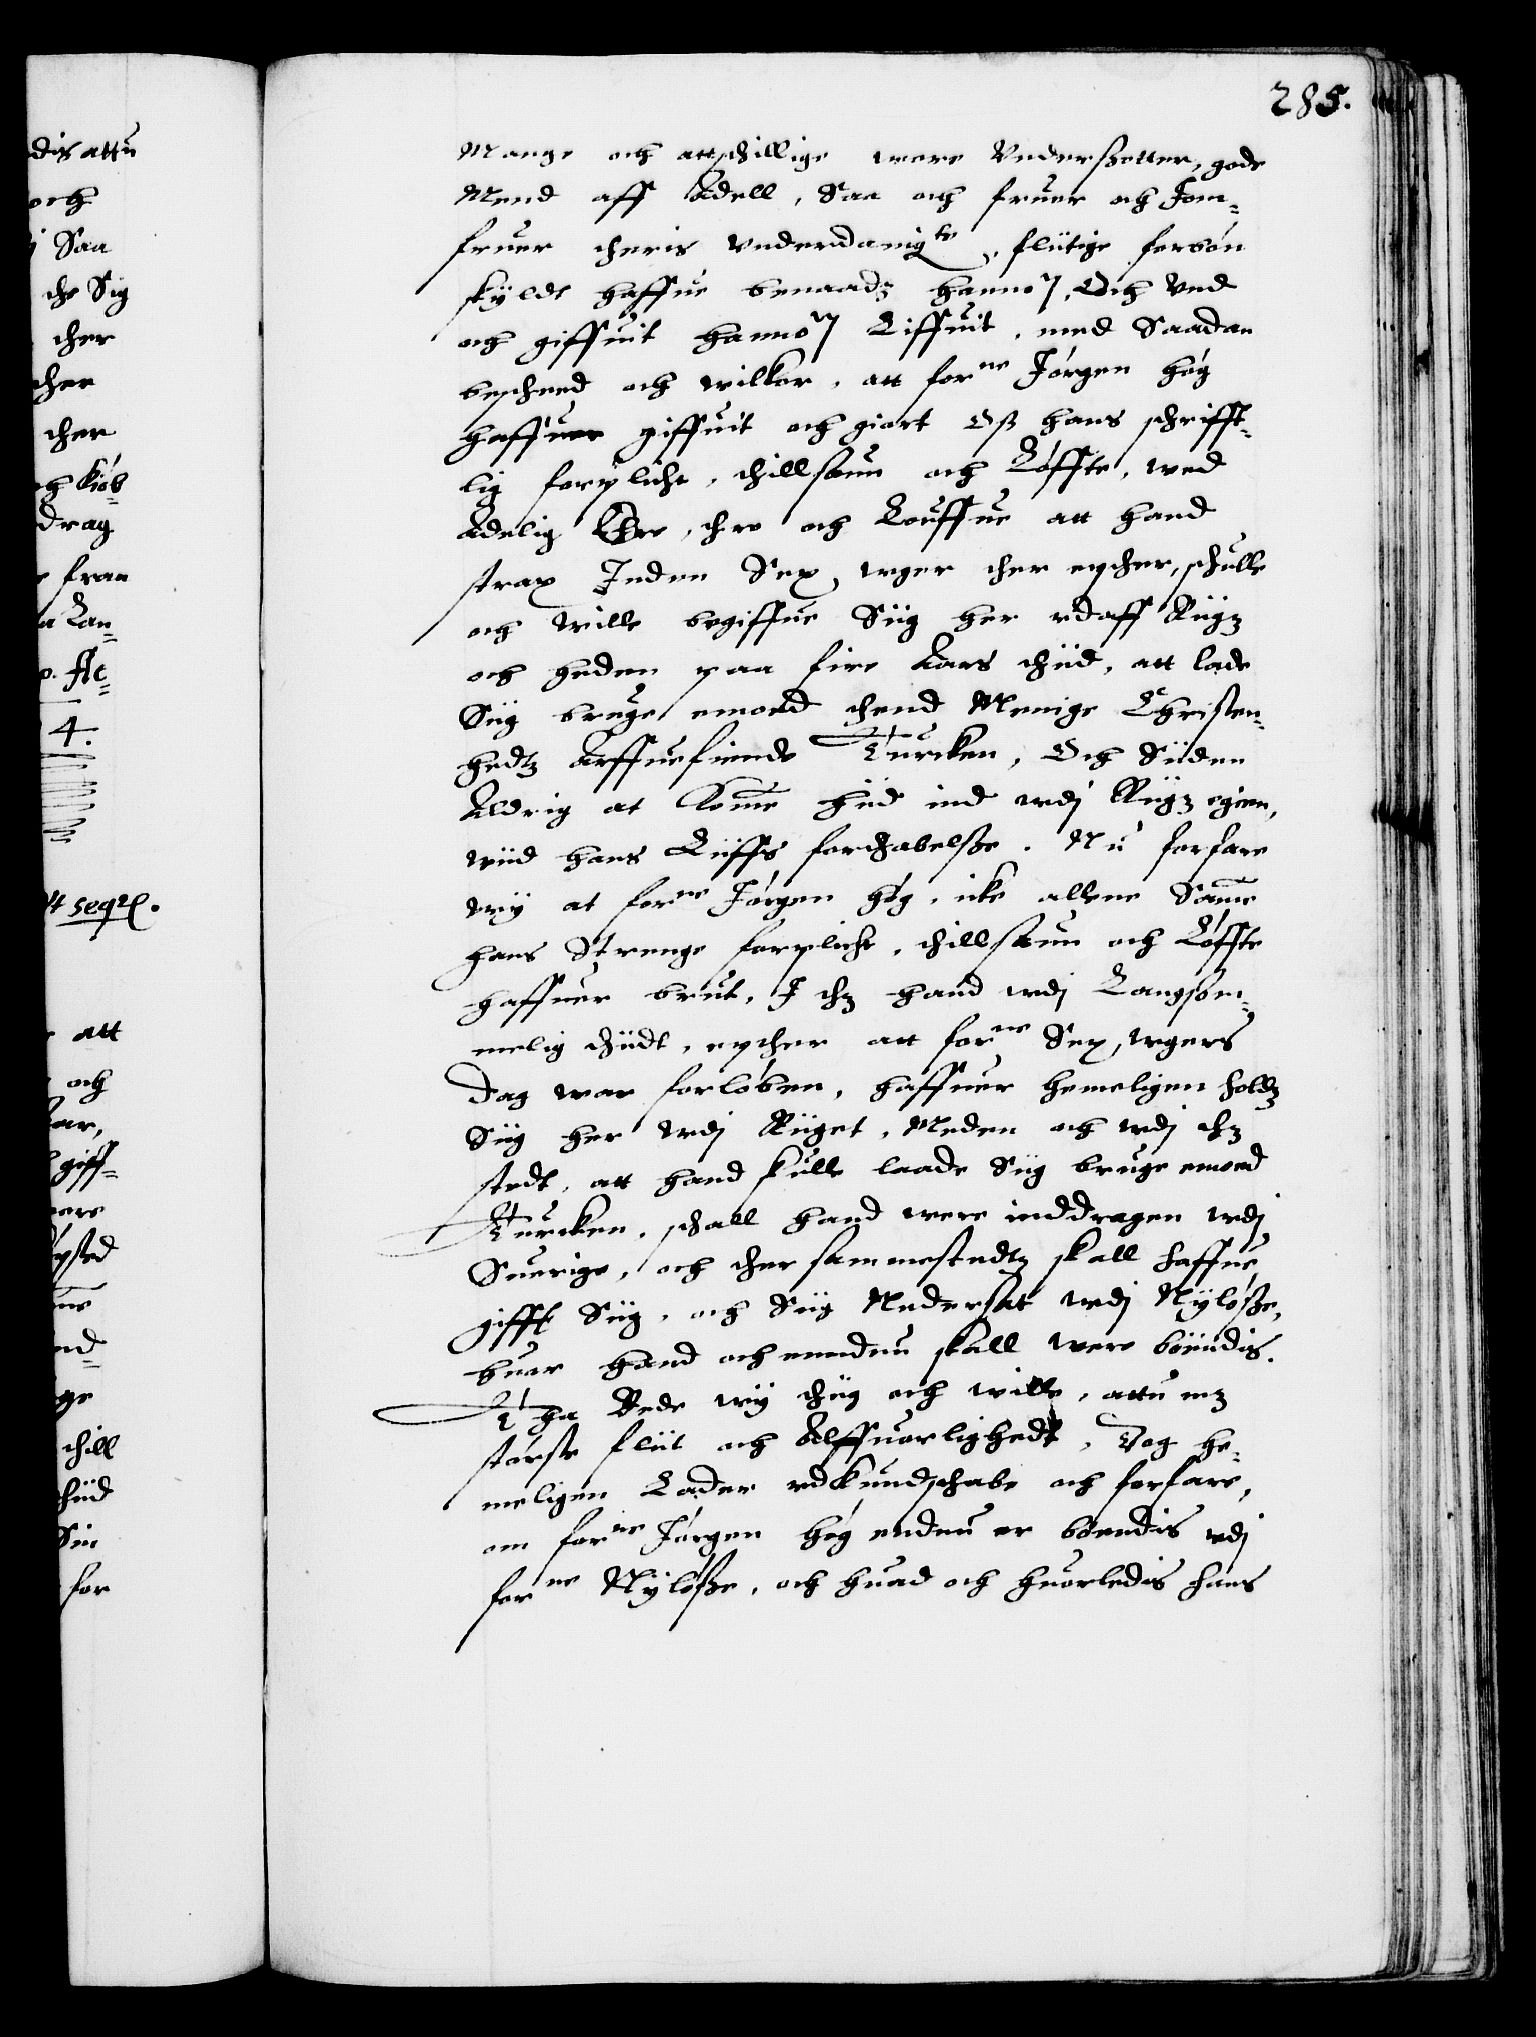 285.
Mange och attschillige wore Vndersotter, gode
Mend aff Adell, Saa och fruer och Jom=
fruer theris vnderdanigste, flitige forbøn
skyldt haffue benaadz hannom, Och Vnd
och giffuit hannom Liffuit, med Saadan
bescheed och wilkor, att forne Jørgen høg
haffuer giffuit och giort Oss hans schrifft=
lig forplicht, thillsaun och Løffte, wed
Adelig Ere, thro och Louffue att hand
strax Inden Sex vger ther epther, schulle
och wille begiffue Siig her vdaff Riigz
och heden paa fire Aars thiid, att lade
Siig bruge emoed thend Menige Christen=
hedtz Arffuefiende Turcken, Och Siiden
Aldrig at komme hiid ind vdj Riigz egien,
wiid hans Liiffs fortabelsse. Nu forfare
wy at forne Jørgen høg, icke allene Samme
hans Strenge forplicht, thillsaun och Løffte
haffuer brut, I thz hand vdj Langsom=
melig thiidt, epther att forne Sex vgers
dag war forløben, haffuer hemeligen holdz
Siig her vdj Riiget, Meden och vdj thz
stedt, att hand skulle laade Siig bruge emoed
Turcken, schall hand were inddragen vdj
Suerige, och ther sammestedtz skall haffue
gifft Siig, och Siig Nedersat vdj Nyløsse,
huor hand och enndnu skall were boendis.
Tha Bede wy thiig och wille, attu mz
største fliit och Alffuorlighedt, Dog he=
meligen Lader vdkundschabe och forfare,
om forne Jørgen høg endnu er boendis vdj
forne Nyløsse, och huad och huorledis hans
dis attu
och
j Saa
the Sig
ther
ther
ther
och kiøb
drag
fraa
a Lan=
p. Ac=
4.
vt seqr.
att
och
giff=
were
psted
nd=
ge
thill
thiid
Sin
for